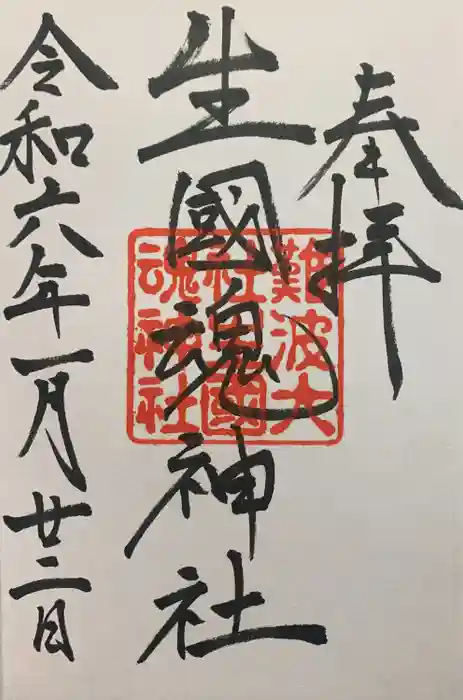 奉拝
生國魂神社
難波大
社生國
魂神社
令和六年一月廿二日